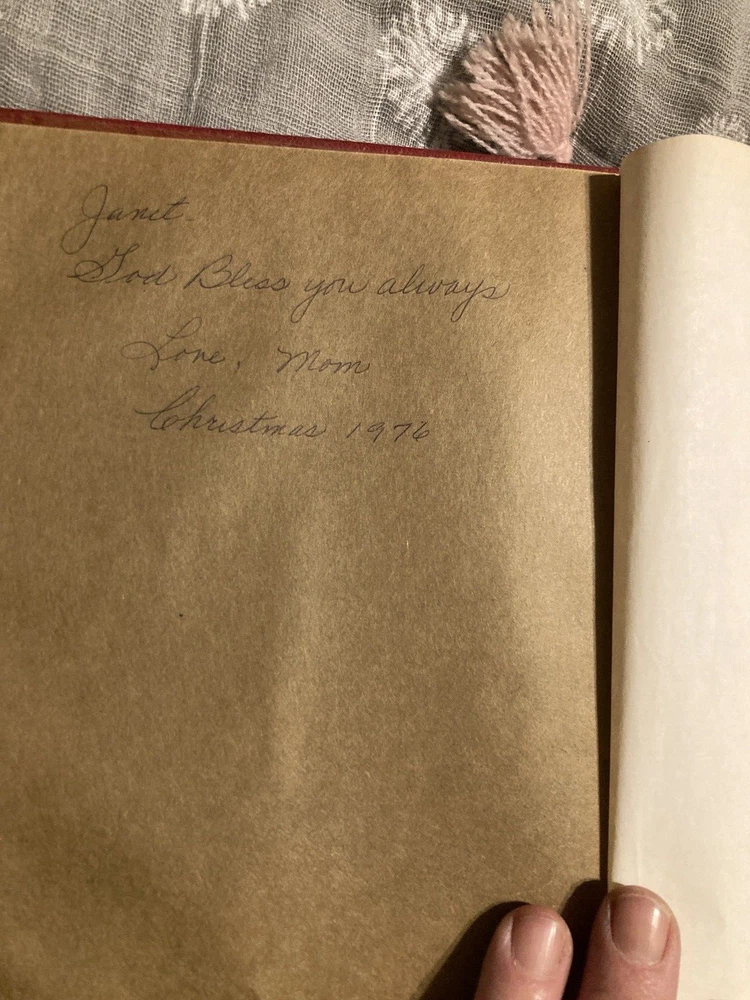 Janet.
God Bless you always
Love, Mom
Christmas 1976